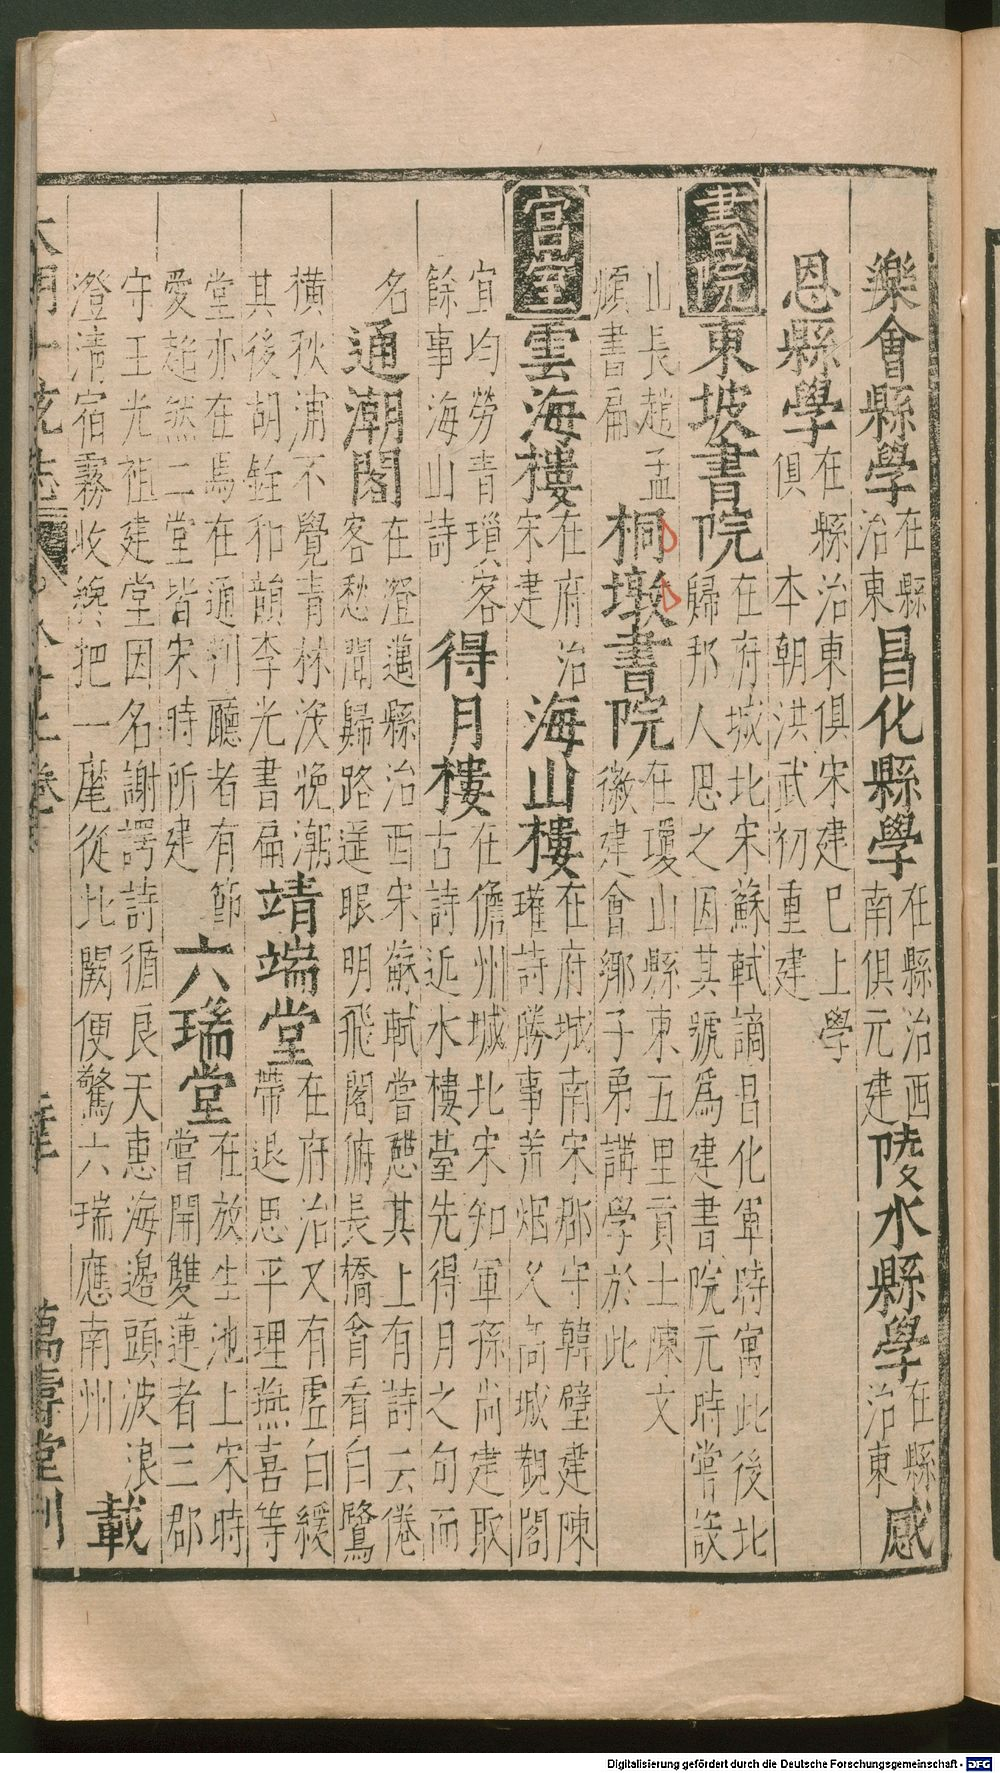 樂會縣學在縣治東昌化縣學在縣治西南俱元建陵水縣學在縣治東感
恩縣學在縣治東俱宋建已上學俱本朝洪武初重建
書院東坡書院在府城北宋蘇軾謫昌化軍時寓此後北歸邦人思之因其號為建書院元時嘗設
山長趙孟頫書扁桐墩書院在瓊山縣東五里貢士陳文徽建會鄉子弟講學於此
宮室雲海樓在府治宋建海山樓在府城南宋郡守韓璧建陳瓘詩勝事荒烟乆高城觀閣
宜均勞青瑣客餘事海山詩得月樓在儋州城北宋知軍孫尚建取古詩近水樓臺先得月之句而
名通潮閣在澄邁縣治西宋蘇軾嘗憇其上有詩云倦客愁聞歸路遥眼明飛閣俯長橋貪看白鷺
橫秋浦不覺青林沒晚潮其後胡銓和韻李光書扁靖端堂在府治又有虛白緩帶退思平理燕喜等
堂亦在焉在通判廳者有節愛超然二堂皆宋時所建六瑞堂在放生池上宋時嘗開雙蓮者三郡
守王光祖建堂因名謝諤詩循良天惠海邊頭波浪澄清宿霧收纔把一麾從北闕便驚六瑞應南州載
萬壽堂刊
Digitalisierung gefördert durch die Deutsche Forschungsgemeinschaft - DFG